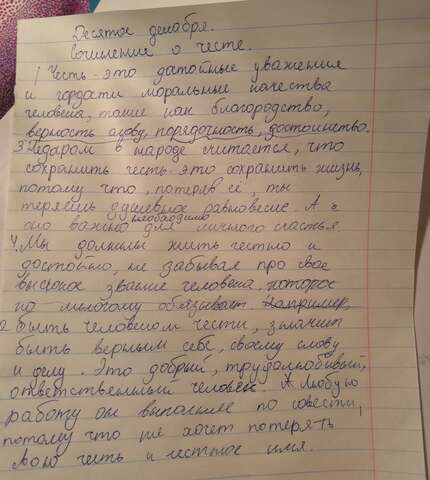 Десятое декабря.
Сочинение о чести.
1 Честь - это достойные уважения
и гордости моральные качества
человека, такие как благородство,
верность слову, порядочность, достоинство.
3. Недаром в народе считается, что
сохранить честь - это сохранить жизнь,
потому что, потеряв её, ты
теряешь душевное равновесие. А
необходимо
оно важно для личного счастья.
4. Мы должны жить честно и
достойно, не забывая про свое
высокое звание человека, которое
ко многому обязывает. Например,
2. быть человеком чести, значит
быть верным себе, своему слову
и делу. Это добрый, трудолюбивый,
ответственный человек. А любую
работу он выполняет по совести,
потому что не хочет потерять
свою честь и честное имя.